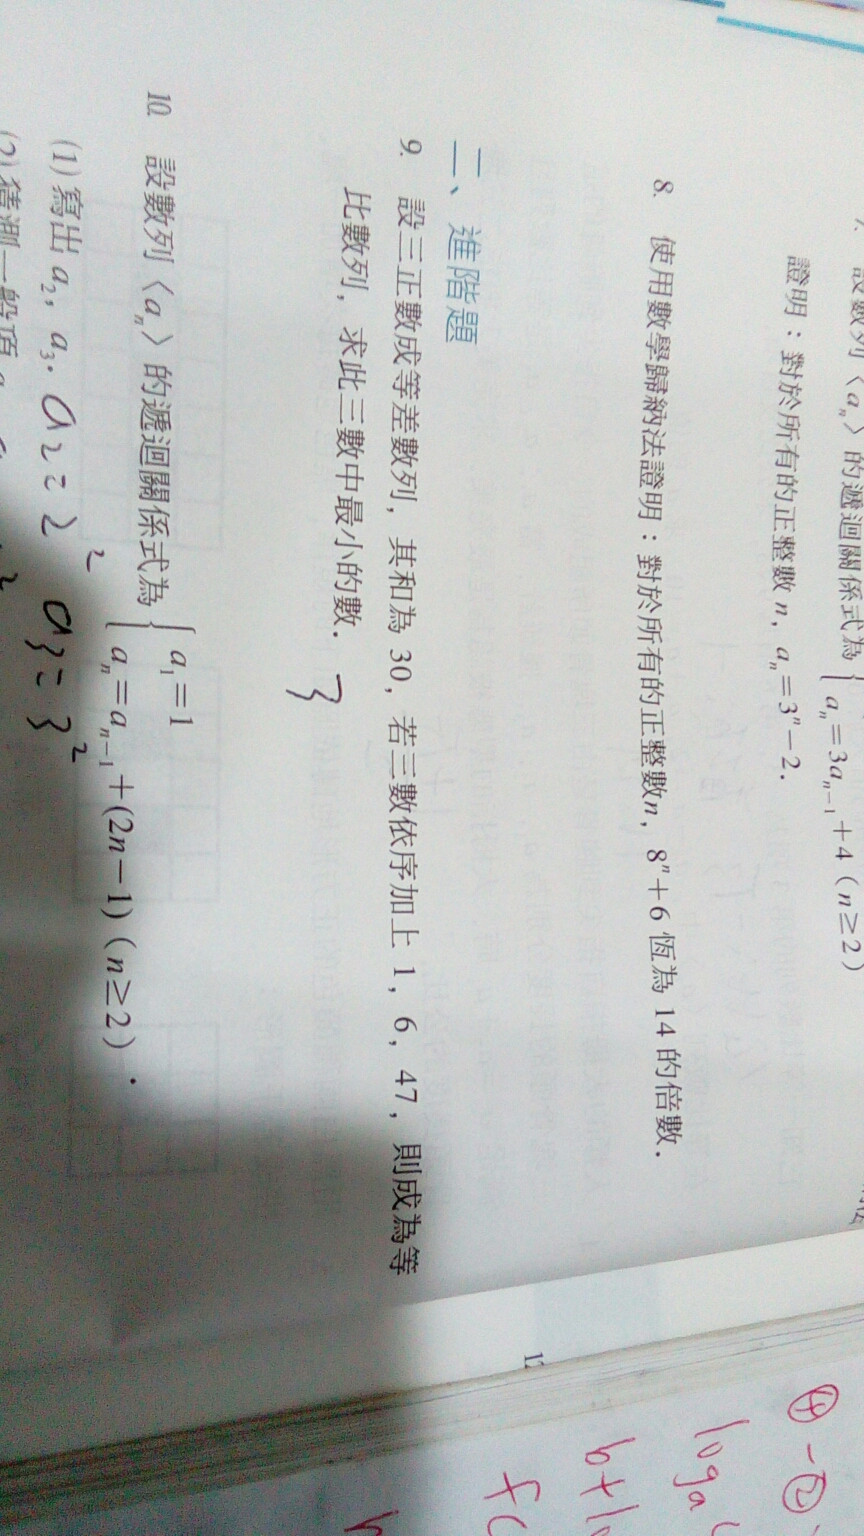 設數列〈aₙ〉的遞迴關係式為{
aₙ=3aₙ₋₁+4（n≥2）
證明：對於所有的正整數 n，aₙ=3ⁿ-2．
8. 使用數學歸納法證明：對於所有的正整數n，8ⁿ+6 恆為 14 的倍數．
二、進階題
9. 設三正數成等差數列，其和為 30，若三數依序加上 1，6，47，則成為等
比數列，求此三數中最小的數．
10. 設數列〈aₙ〉的遞迴關係式為{ a₁=1
aₙ=aₙ₋₁+(2n-1)（n≥2）．
(1) 寫出 a₂，a₃． a₂=2² a₃=3²
(2) 猜測一般項
12
④-②
logₐ
b+1